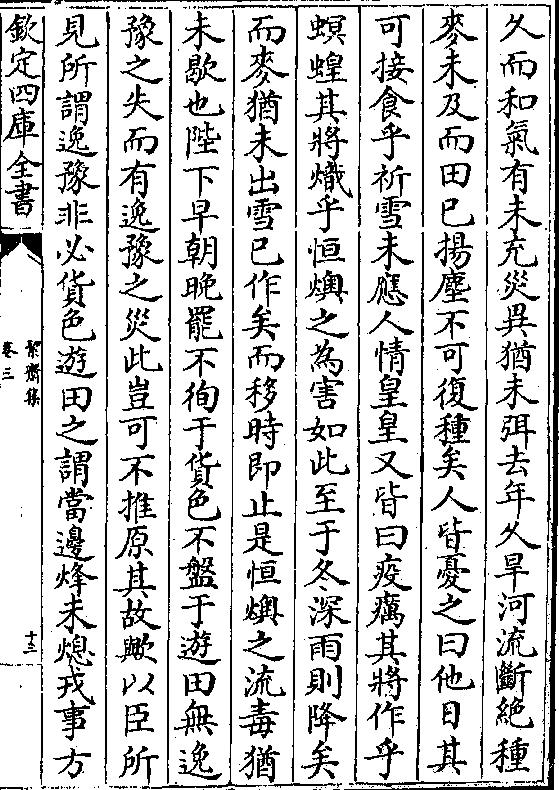 久而和氣有未充災異猶未弭去年久旱河流斷絕種
麥未及而田已揚塵不可復種矣人皆憂之曰他日其
可接食乎祈雪未應人情皇皇又皆曰疫癘其將作乎
螟蝗其將熾乎恒燠之為害如此至于冬深雨則降矣
而麥猶未出雪已作矣而移時即止是恒燠之流毒猶
未歇也陛下早朝晚罷不徇于貨色不盤于遊田無逸
豫之失而有逸豫之災此豈可不推原其故歟以臣所
見所謂逸豫非必貨色遊田之謂當邊烽未熄戎事方
欽定四庫全書
絜齋集
卷三
十三